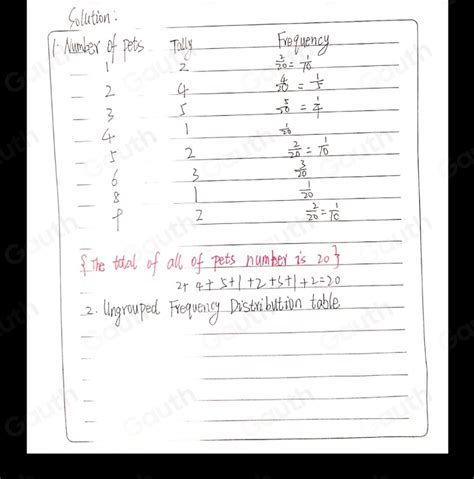 Solution:
1. Number of pets Tally Frequency
1 2 2/20 = 1/10
2 4 4/20 = 1/5
3 5 5/20 = 1/4
4 1 1/20
5 2 2/20 = 1/10
6 3 3/20
8 1 1/20
9 2 2/20 = 1/10
{ The total of all of pets number is 20 }
2+4+5+1+2+3+1+2=20
2. Ungrouped Frequency Distribution table
Gauth